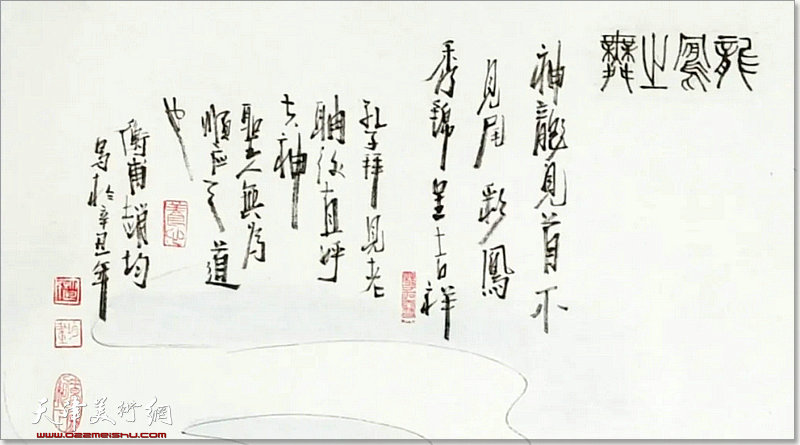 龍鳳之舞
神龍見首不
見尾彩鳳
秀錦呈吉祥
孔子拜見老
聃後直呼
其神
聖人無為
順應之道
也
衡甫趙均
寫於辛丑年
天津美術網
www.022meishu.com